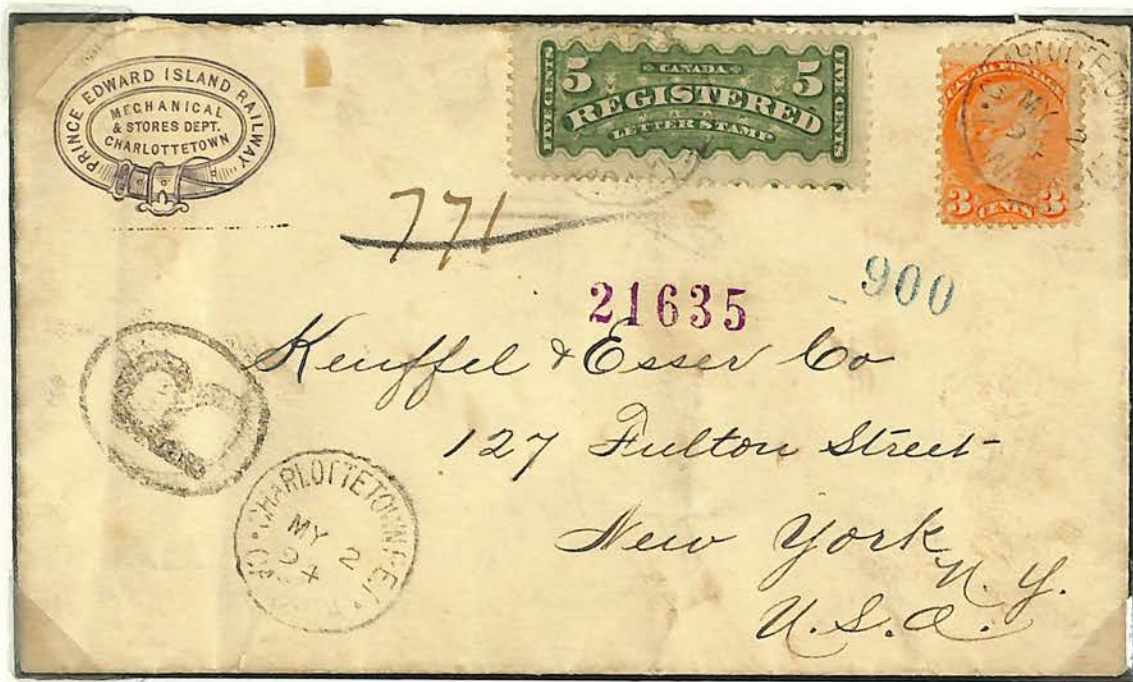 PRINCE EDWARD ISLAND RAILWAY
MECHANICAL
& STORES DEPT.
CHARLOTTETOWN
5 CANADA 5
FIVE CENTS
REGISTERED
FIVE CENTS
LETTER STAMP
CANADA POSTAGE
3 CENTS 3
771
21635
900
Keuffel & Esser Co
127 Fulton Street
New York
N.Y.
U.S.A.
R
CHARLOTTETOWN P.E.I.
MY 2
94